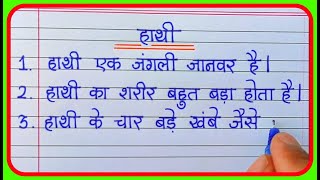 हाथी
1. हाथी एक जंगली जानवर है।
2. हाथी का शरीर बहुत बड़ा होता है।
3. हाथी के चार बड़े खंबे जैसे